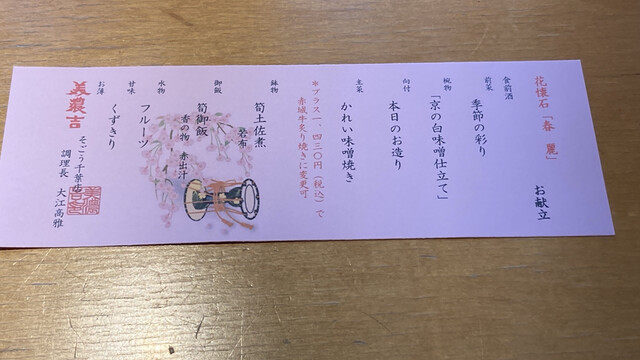 花懐石「春麗」　お献立
食前酒
前菜　季節の彩り
椀物　「京の白味噌仕立て」
向付　本日のお造り
主菜　かれい味噌焼き
＊プラス一、四三〇円（税込）で
赤城牛炙り焼きに変更可
鉢物　筍土佐煮
若布
御飯　筍御飯
香の物　赤出汁
水物　フルーツ
甘味　くずきり
お薄
美濃吉
そごう千葉店
調理長　大江高雅